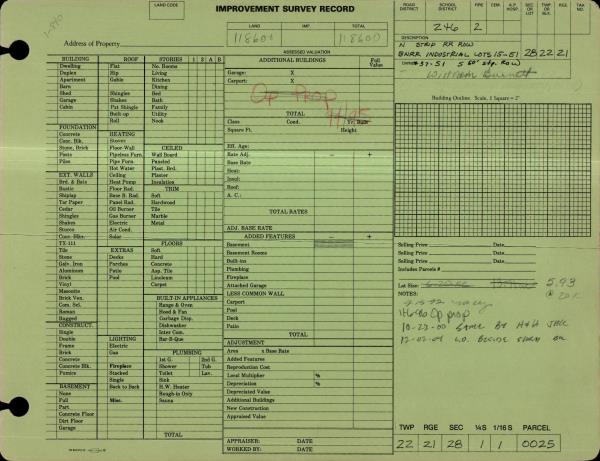 LAND CODE
IMPROVEMENT SURVEY RECORD
ROAD DISTRICT SCHOOL DISTRICT FIRE C.A. HOSP. SEC OR LOT TWP OR BLK RGE TAX NO.
LAND IMP. TOTAL
118600 118600
246 2
Address of Property
ASSESSED VALUATION
DESCRIPTION
N STRIP RR ROW
BNRR INDUSTRIAL LOTS 15-51 28 22 21
BUILDING ROOF STORIES 1 2 A B
ADDITIONAL BUILDINGS Full Value
Dwelling Flat No. Rooms
Duplex Hip Living
Apartment Gable Kitchen
Barn Dining
Shed Shingles Bed
Garage Shakes Bath
Cabin Pat Shingle Family
Built up Utility
Roll Nook
Garage: X
Carport: X
Op PROP
TOTAL
Class Cond. Yr. Built
Square Ft. Height
Building Outline: Scale, 1 Square = 2'
FOUNDATION
Concrete HEATING
Conc. Blk. Stoves
Stone, Brick Floor-Wall CEILED
Posts Pipeless Furn. Wall Board
Piles Pipe Furn. Paneled
Hot Water Plast. Brd.
EXT. WALLS Ceiling Plaster
Brd. & Bats Heat Pump Insulation
Rustic Floor Rad. TRIM
Shiplap Base B. Rad. Soft
Tar Paper Panel Rad. Hardwood
Cedar Oil Burner Tile
Shingles Gas Burner Marble
Shakes Electric Metal
Stucco Air Cond.
Conc. Blk. Solar
TX-111 FLOORS
Tile EXTRAS Soft
Stone Decks Hard
Galv. Iron Porches Concrete
Aluminum Patio Asp. Tile
Brick Pool Linoleum
Vinyl Carpet
Masonite
Brick Ven. BUILT-IN APPLIANCES
Com. Sel. Range & Oven
Roman Hood & Fan
Rugged Garbage Disp.
CONSTRUCT. Dishwasher
Single Inter Com.
Double LIGHTING Bar-B-Que
Frame Electric
Brick Gas PLUMBING
Concrete 1st G. 2nd G.
Conc. Blk. Fireplace Shower Tub
Pumice Stacked Toilet Lav.
Single Sink
BASEMENT Back to Back H.W. Heater
None Rough-in Only
Full Misc. Sauna
Part.
Concrete Floor
Dirt Floor
Garage
TOTAL
Eff. Age:
Rate Adj. − +
Base Rate
Heat:
Insul:
Roof:
A. C.:
TOTAL RATES
ADJ. BASE RATE
ADDED FEATURES − +
Basement
Basement Rooms
Built-ins
Plumbing
Fireplace
Attached Garage
LESS COMMON WALL
Carport
Pool
Deck
Patio
TOTAL
ADJUSTMENT
Area x Base Rate
Added Features
Reproduction Cost
Local Multiplier %
Depreciation %
Depreciated Value
Additional Buildings
New Construction
Appraised Value
APPRAISER: DATE
WORKED BY: DATE
Selling Price Date
Selling Price Date
Selling Price Date
Includes Parcels #
Lot Size: 5.93
NOTES:
TWP RGE SEC ¼S 1/16 S PARCEL
22 21 28 1 1 0025